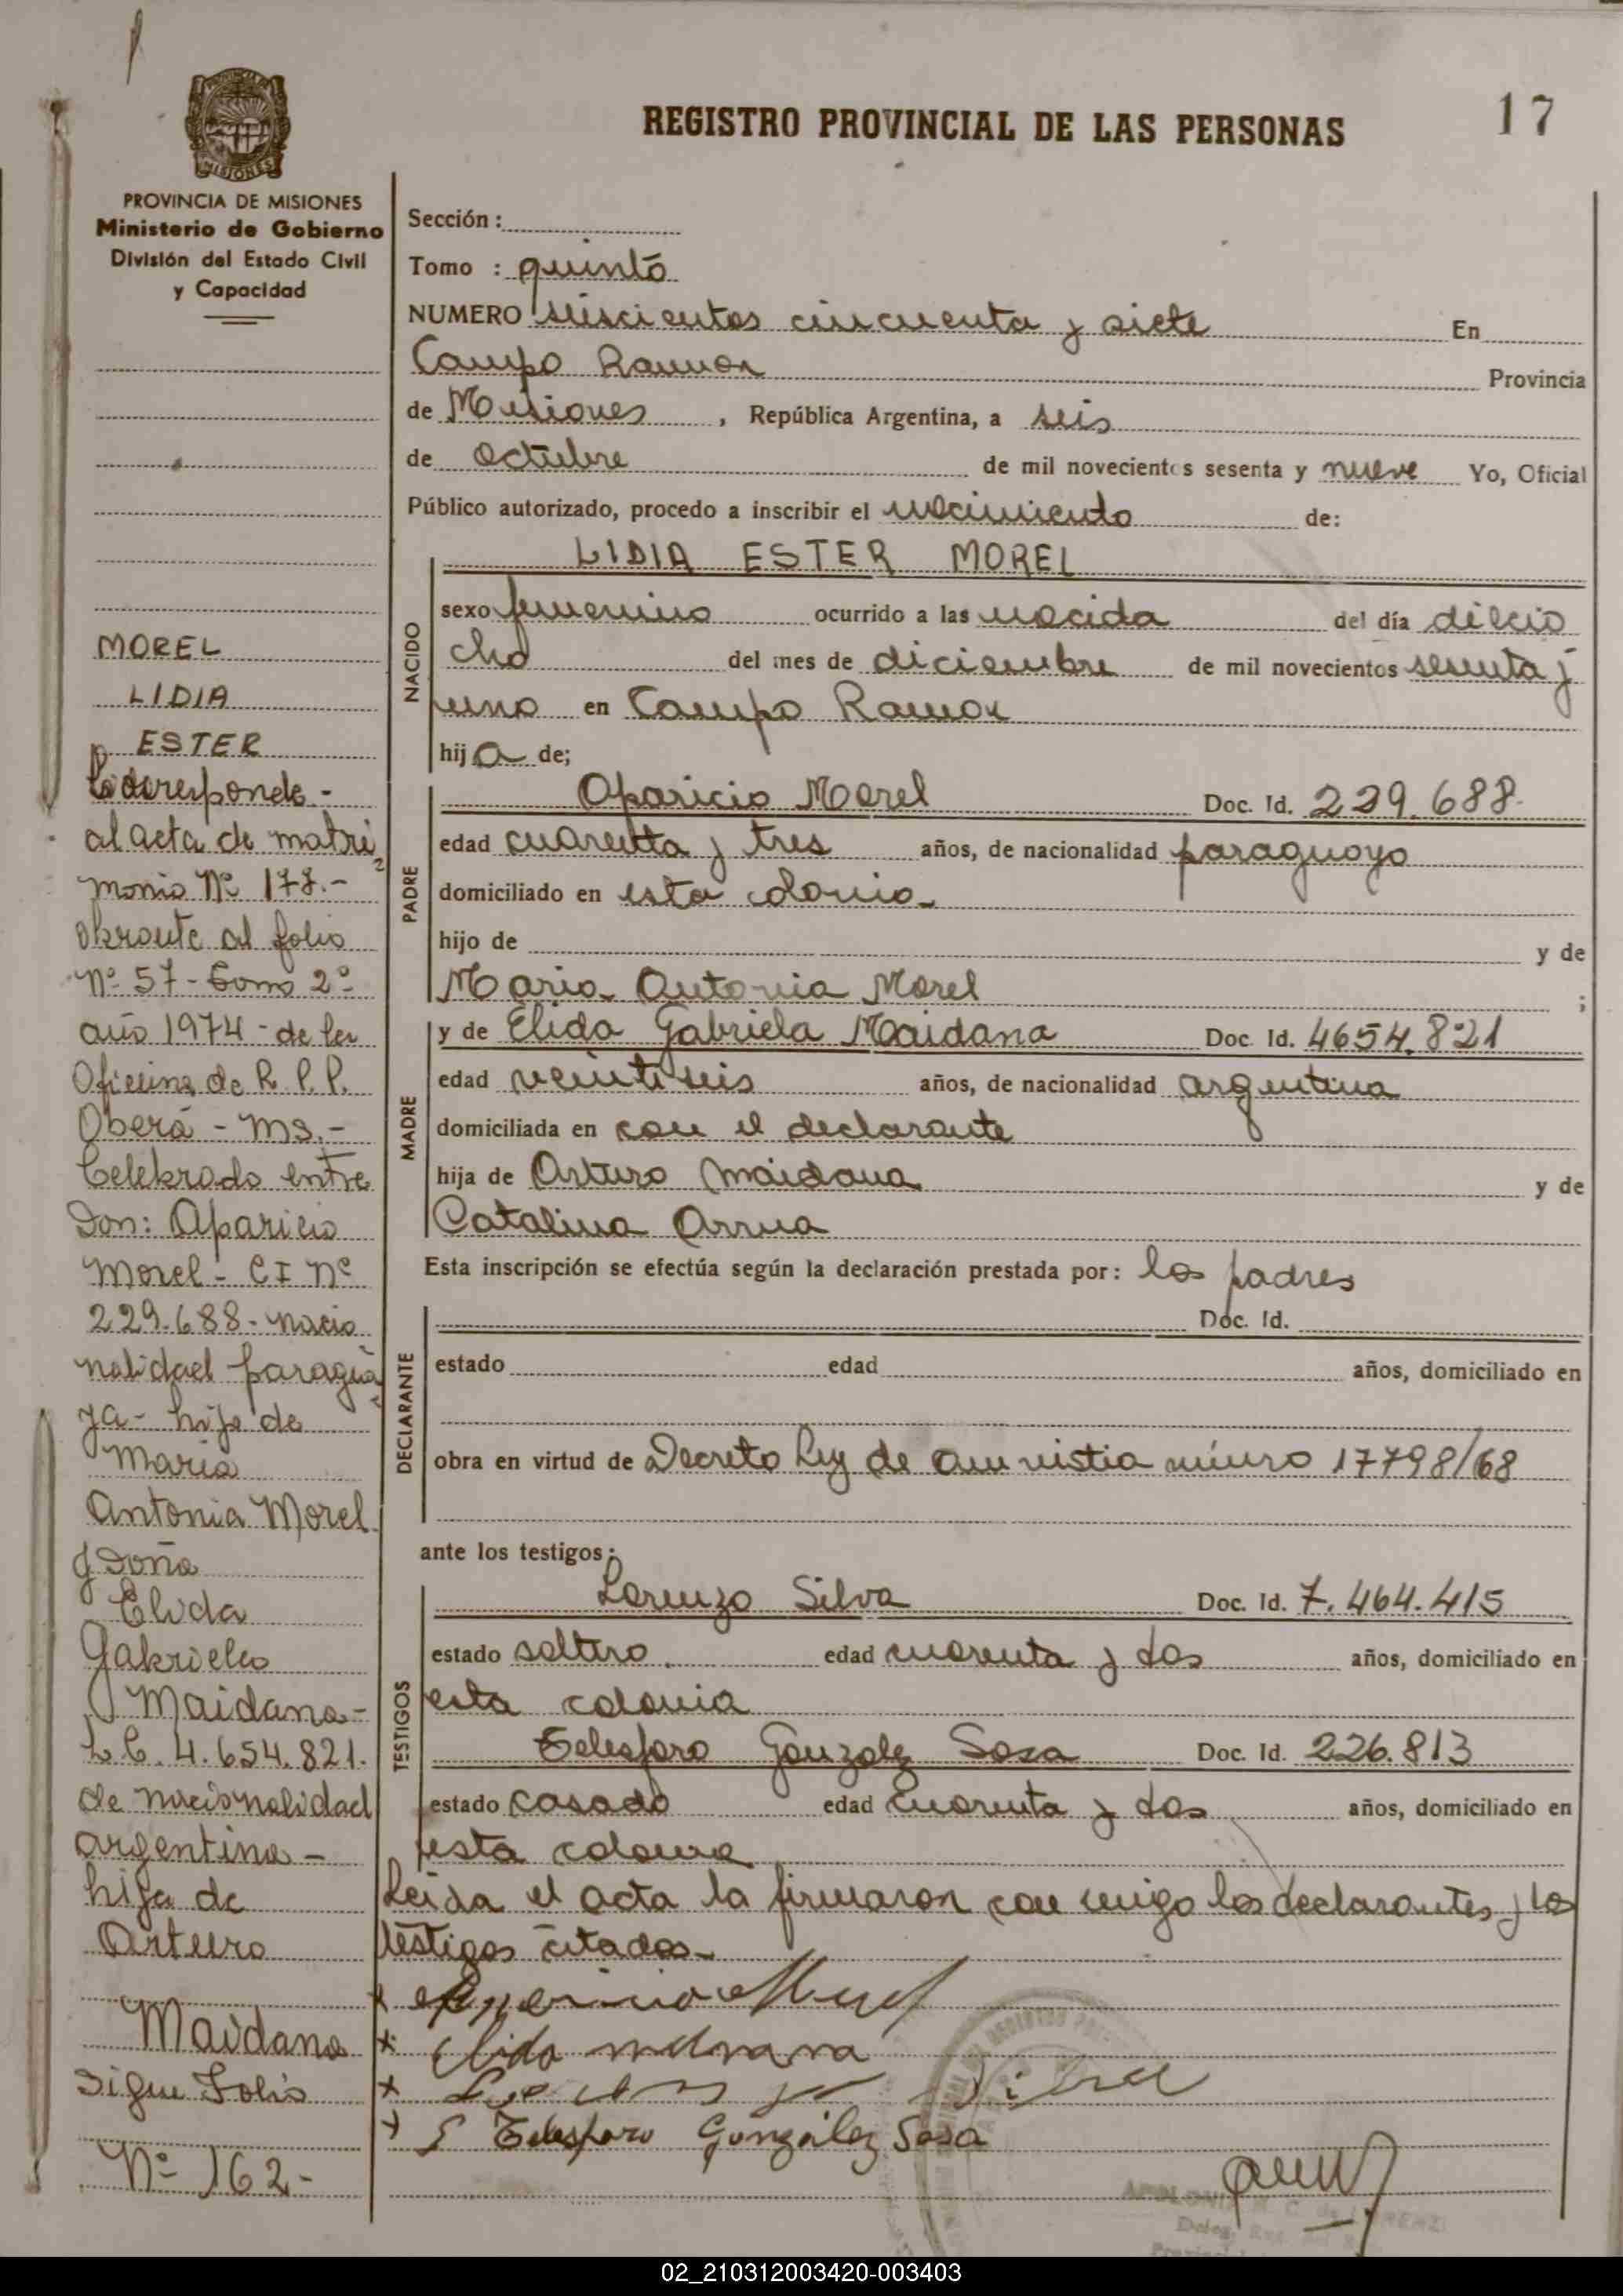 REGISTRO PROVINCIAL DE LAS PERSONAS
17
MISIONES
PROVINCIA DE MISIONES
Ministerio de Gobierno
División del Estado Civil
y Capacidad
MOREL
LIDIA
ESTER
Corresponde -
al acta de matri
monio Nº 178.-
obrante al folio
Nº 57 - Tomo 2º
año 1974 - de la
Oficina de R. P. P.
Oberá - Ms.-
Celebrado entre
Don: Aparicio
Morel - CI Nº
229.688 - nacio
nalidad paragua
ya - hijo de
Maria
Antonia Morel
y Doña
Elida
Gabriela
Maidana -
L C. 4.654.821.
de nacionalidad
argentina -
hija de
Arturo
Maidana
Sigue Folio
Nº 162-
Sección :
Tomo : quinto
NUMERO seiscientos cincuenta y siete En
Campo Ramon Provincia
de Misiones , República Argentina, a seis
de octubre de mil novecientos sesenta y nueve Yo, Oficial
Público autorizado, procedo a inscribir el nacimiento de:
LIDIA ESTER MOREL
NACIDO
sexo femenino ocurrido a las nacida del día diecio
cho del mes de diciembre de mil novecientos sesenta y
uno en Campo Ramon
hija de;
PADRE
Aparicio Morel Doc. Id. 229.688.
edad cuarenta y tres años, de nacionalidad paraguayo
domiciliado en esta colonia
hijo de y de
Maria Antonia Morel ;
MADRE
y de Elida Gabriela Maidana Doc Id. 4654.821
edad veintiseis años, de nacionalidad argentina
domiciliada en con el declarante
hija de Arturo Maidana y de
Catalina Arrua
Esta inscripción se efectúa según la declaración prestada por: los padres
DECLARANTE
Doc. Id.
estado edad años, domiciliado en
obra en virtud de Decreto Ley de amnistia número 17798/68
ante los testigos:
TESTIGOS
Lorenzo Silva Doc. Id. 7.464.415
estado soltero edad cuarenta y dos años, domiciliado en
esta colonia
Telesforo Gonzalez Sosa Doc. Id. 226.813
estado casado edad cuarenta y dos años, domiciliado en
esta colonia
Leida el acta la firmaron con migo los declarantes y los
testigos citados.
x Aparicio Morel
x Elida
x Silva
x Telesforo González Sosa
02_210312003420-003403